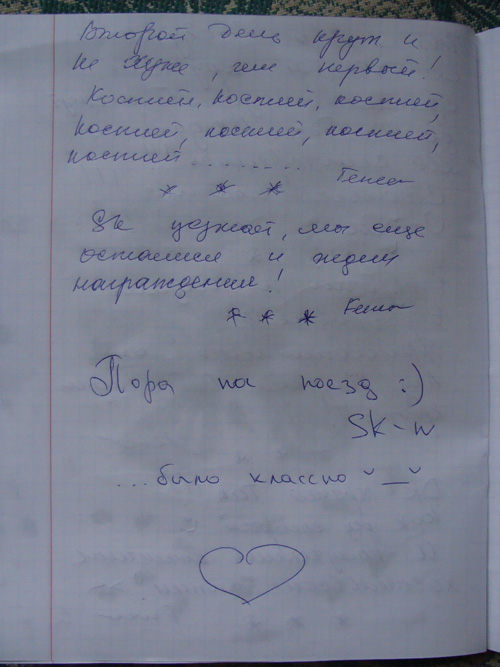 Второй день крут и
не хуже, чем первый!
Коспией, коспией, коспией,
коспией, коспией, коспией,
коспией .........
Гена
* * *
Sk уезжает, мы еще
остаемся и ждем
награждения!
Гена
* * *
Пора на поезд :)
SK-w
...было классно ˇ_ˇ